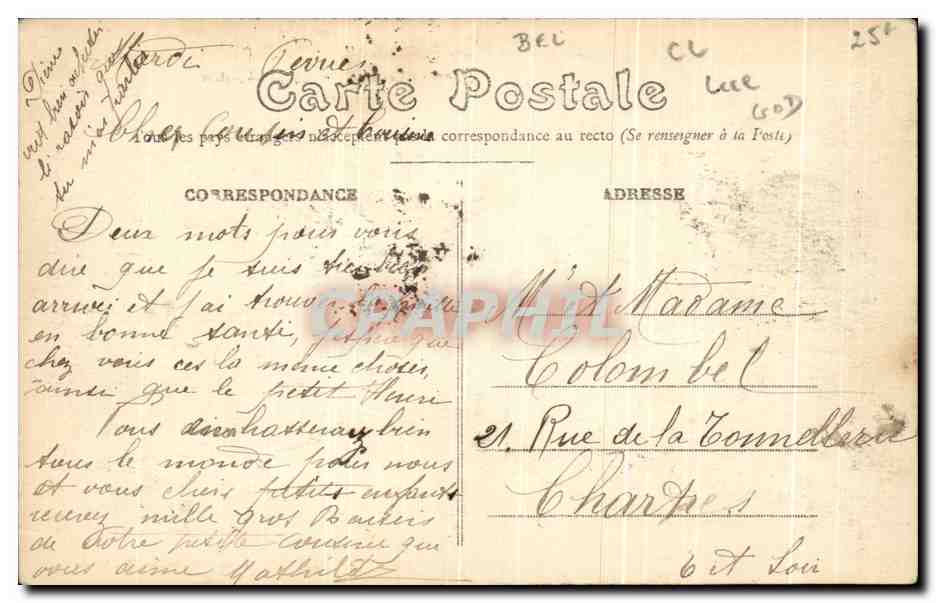 BEL
CL
Luc
25
Mardi
Carte Postale
Chers Cousin et Cousine
Tous les pays étrangers n'acceptent pas la correspondance au recto (Se renseigner à la Poste)
CORRESPONDANCE
ADRESSE
Deux mots pour vous
dire que je suis très bien
arrivé et j'ai trouver la famille
en bonne santé, j'espère que
chez vous ces la même chose,
ainsi que le petit Henri
Vous embrasserez bien
tous le monde pour nous
et vous chers petits enfants
recevez mille gros Baisers
de votre petite cousine qui
vous aime Mathilde
CPAPHIL
Mr et Madame
Colombel
21. Rue de la Tonnellerie
Chartres
E et Loir